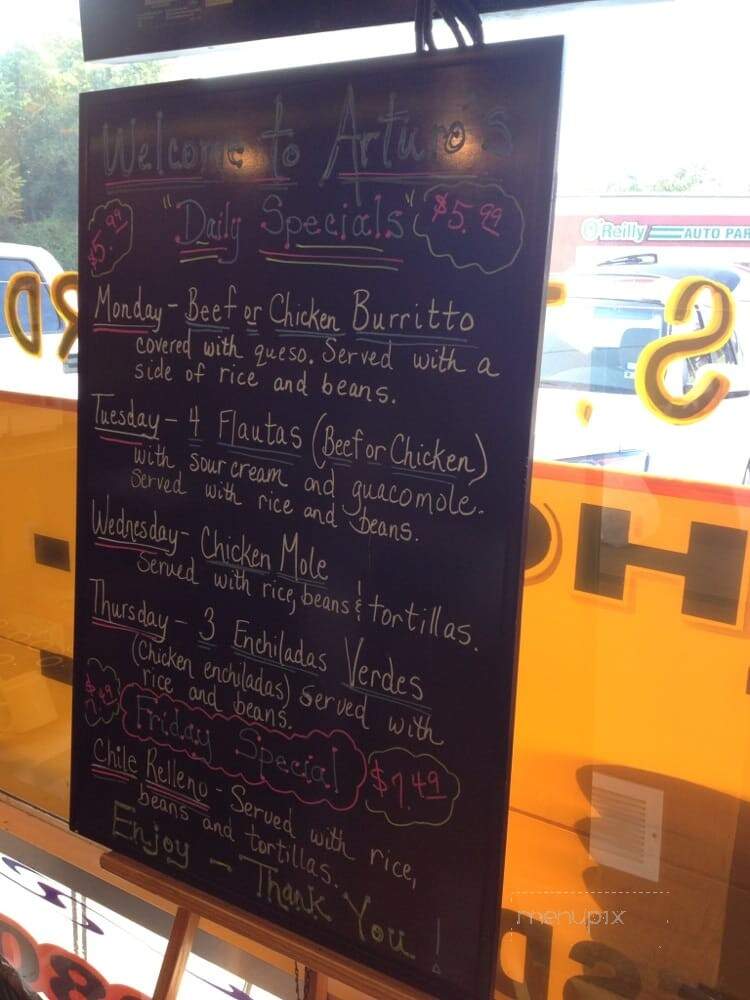 Welcome to Arturo's
$5.99 "Daily Specials" $5.99
Monday - Beef or Chicken Burritto
covered with queso. Served with a
side of rice and beans.
Tuesday - 4 Flautas (Beef or Chicken)
with sour cream and guacomole.
Served with rice and beans.
Wednesday - Chicken Mole
Served with rice, beans & tortillas.
Thursday - 3 Enchiladas Verdes
(Chicken enchiladas) Served with
rice and beans.
Friday Special $7.49
Chile Relleno - Served with rice,
beans and tortillas.
Enjoy - Thank You!
O'Reilly AUTO PAR
S
menupix